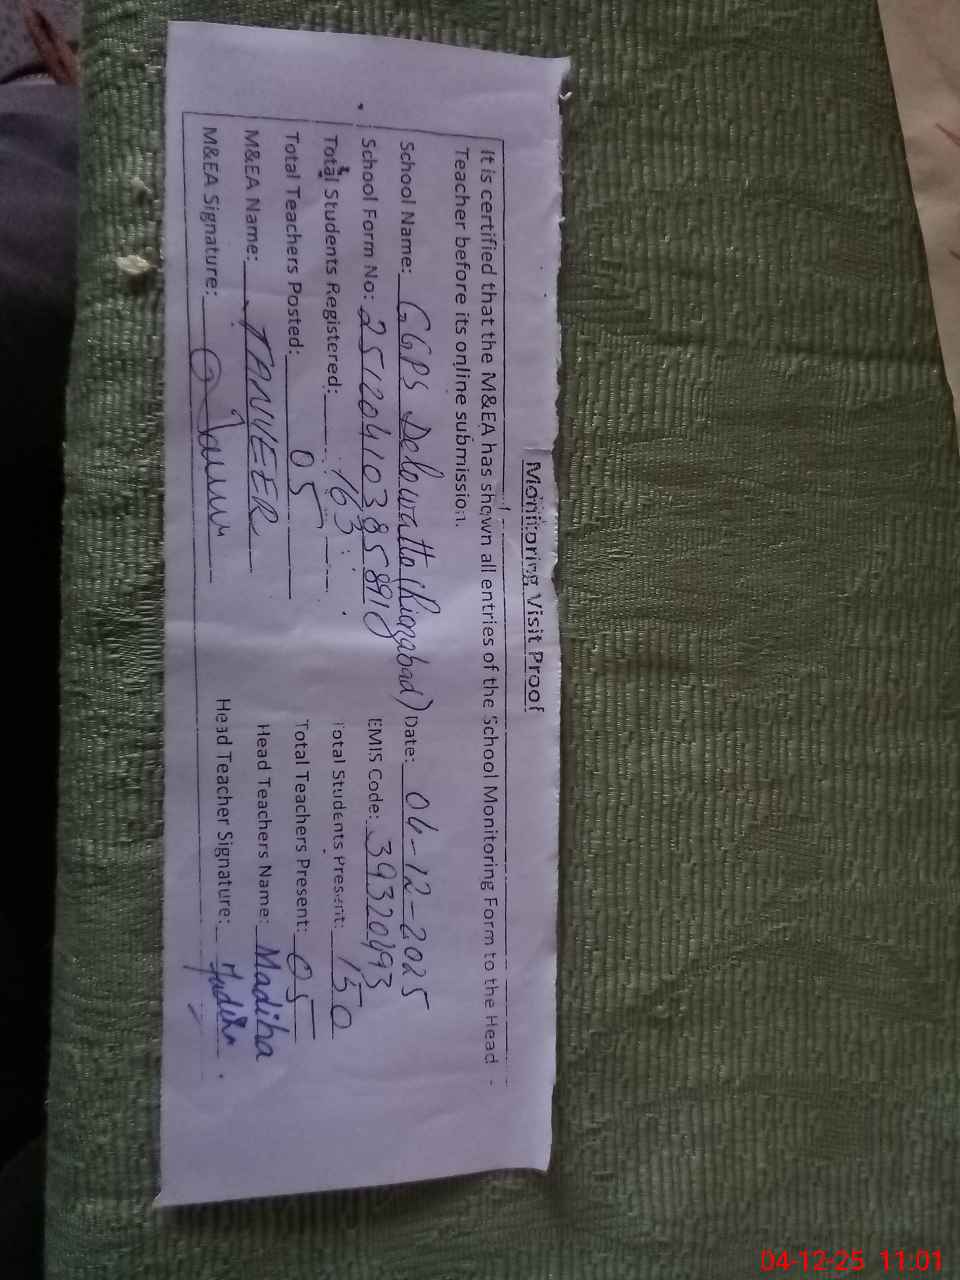 Monitoring Visit Proof
It is certified that the M&EA has shown all entries of the School Monitoring Form to the Head
Teacher before its online submission.
School Name: GGPS Delowatta (Riazabad) Date: 04-12-2025
School Form No: 25120410385891 EMIS Code: 39320493
Total Students Registered: 163 Total Students Present: 150
Total Teachers Posted: 05 Total Teachers Present: 05
M&EA Name: TANVEER Head Teachers Name: Madiha
M&EA Signature: Head Teacher Signature:
04-12-25 11:01